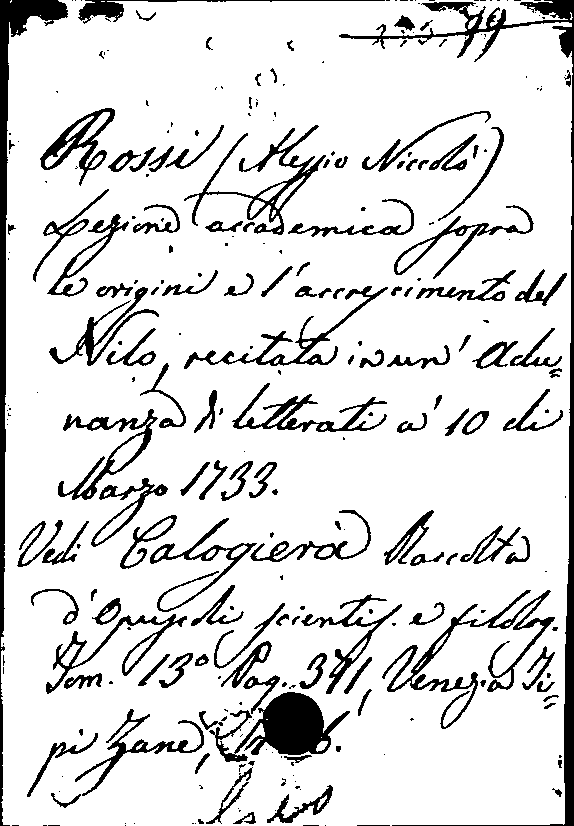 99
Rossi (Alessio Niccolò)
Lezione accademica sopra
le origini e l'accrescimento del
Nilo, recitata in un' Adu=
nanza di letterati a' 10 di
Marzo 1733.
Vedi Calogierà Raccolta
d'Opuscoli scientif. e filolog.
Tom. 13º Pag. 371, Venezia Ti=
pi Zane,